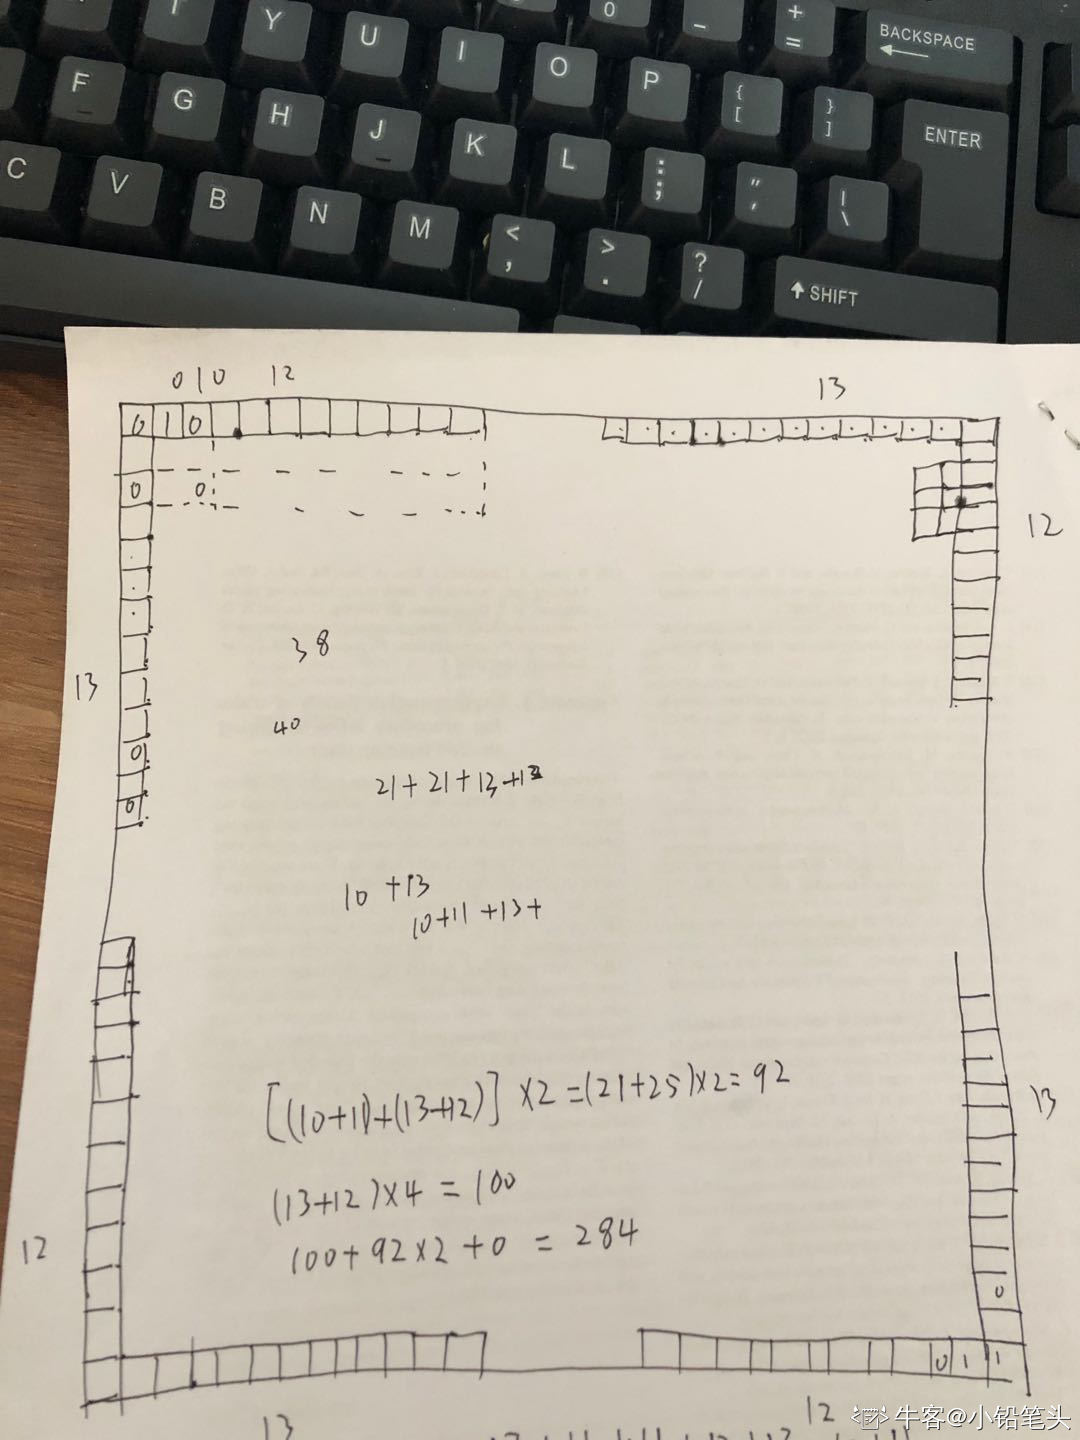 T Y U I O 0 P _ + = BACKSPACE
F G H J K L : ; { [ } ] ENTER
C V B N M < , > . ? / " ' | \ SHIFT
010 12
13
0 1 0
0 0
12
38
13
40
0
0
10 +13
10+11 +13+
[(10+11)+(13+12)] ×2 =(21+25)×2= 92
13
(13+12)×4 = 100
100+92×2 +0 = 284
12
0
0 1 1
13
12
牛客@小铅笔头